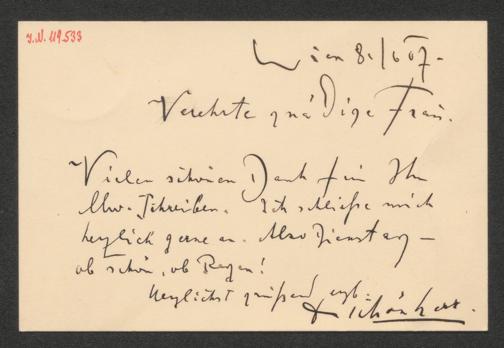 J.N. 119.533
Wien 8./6 07.
Verehrte gnädige Frau.
Vielen schönen Dank für Ihr
Schreiben. Ich schließe mich
herzlich gerne an. Also Dienstag –
ob schön, ob Regen!
Herzlichst grüßend
Schönherr.